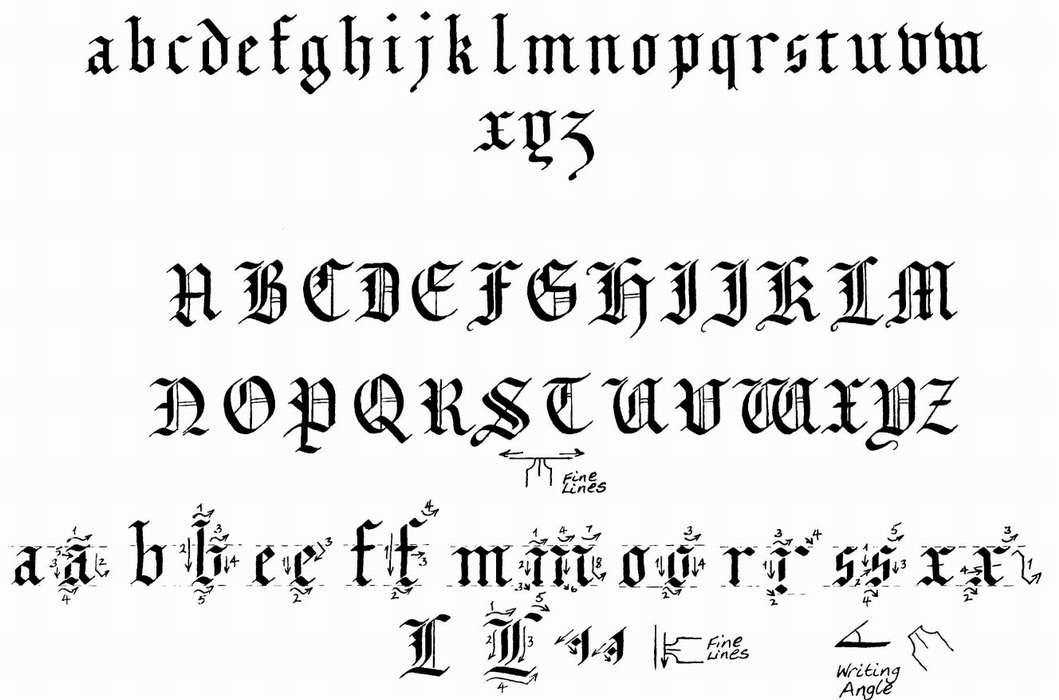 a b c d e f g h i j k l m n o p q r s t u v w
x y z
A B C D E F G H I J K L M
N O P Q R S T U V W X Y Z
Fine
Lines
a a b b e e f f m m o o r r s s x x
L L
Fine
Lines
Writing
Angle